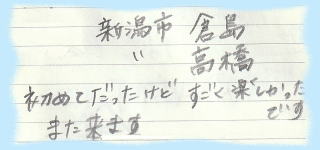 新潟市 倉島
〃 高橋
初めてだったけど すごく楽しかった
です
また来ます